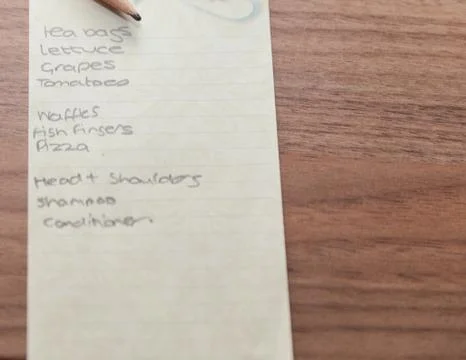 tea bags
Lettuce
Grapes
Tomatoes
Waffles
Fish Fingers
Pizza
Head + Shoulders
Shampoo
Conditioner.